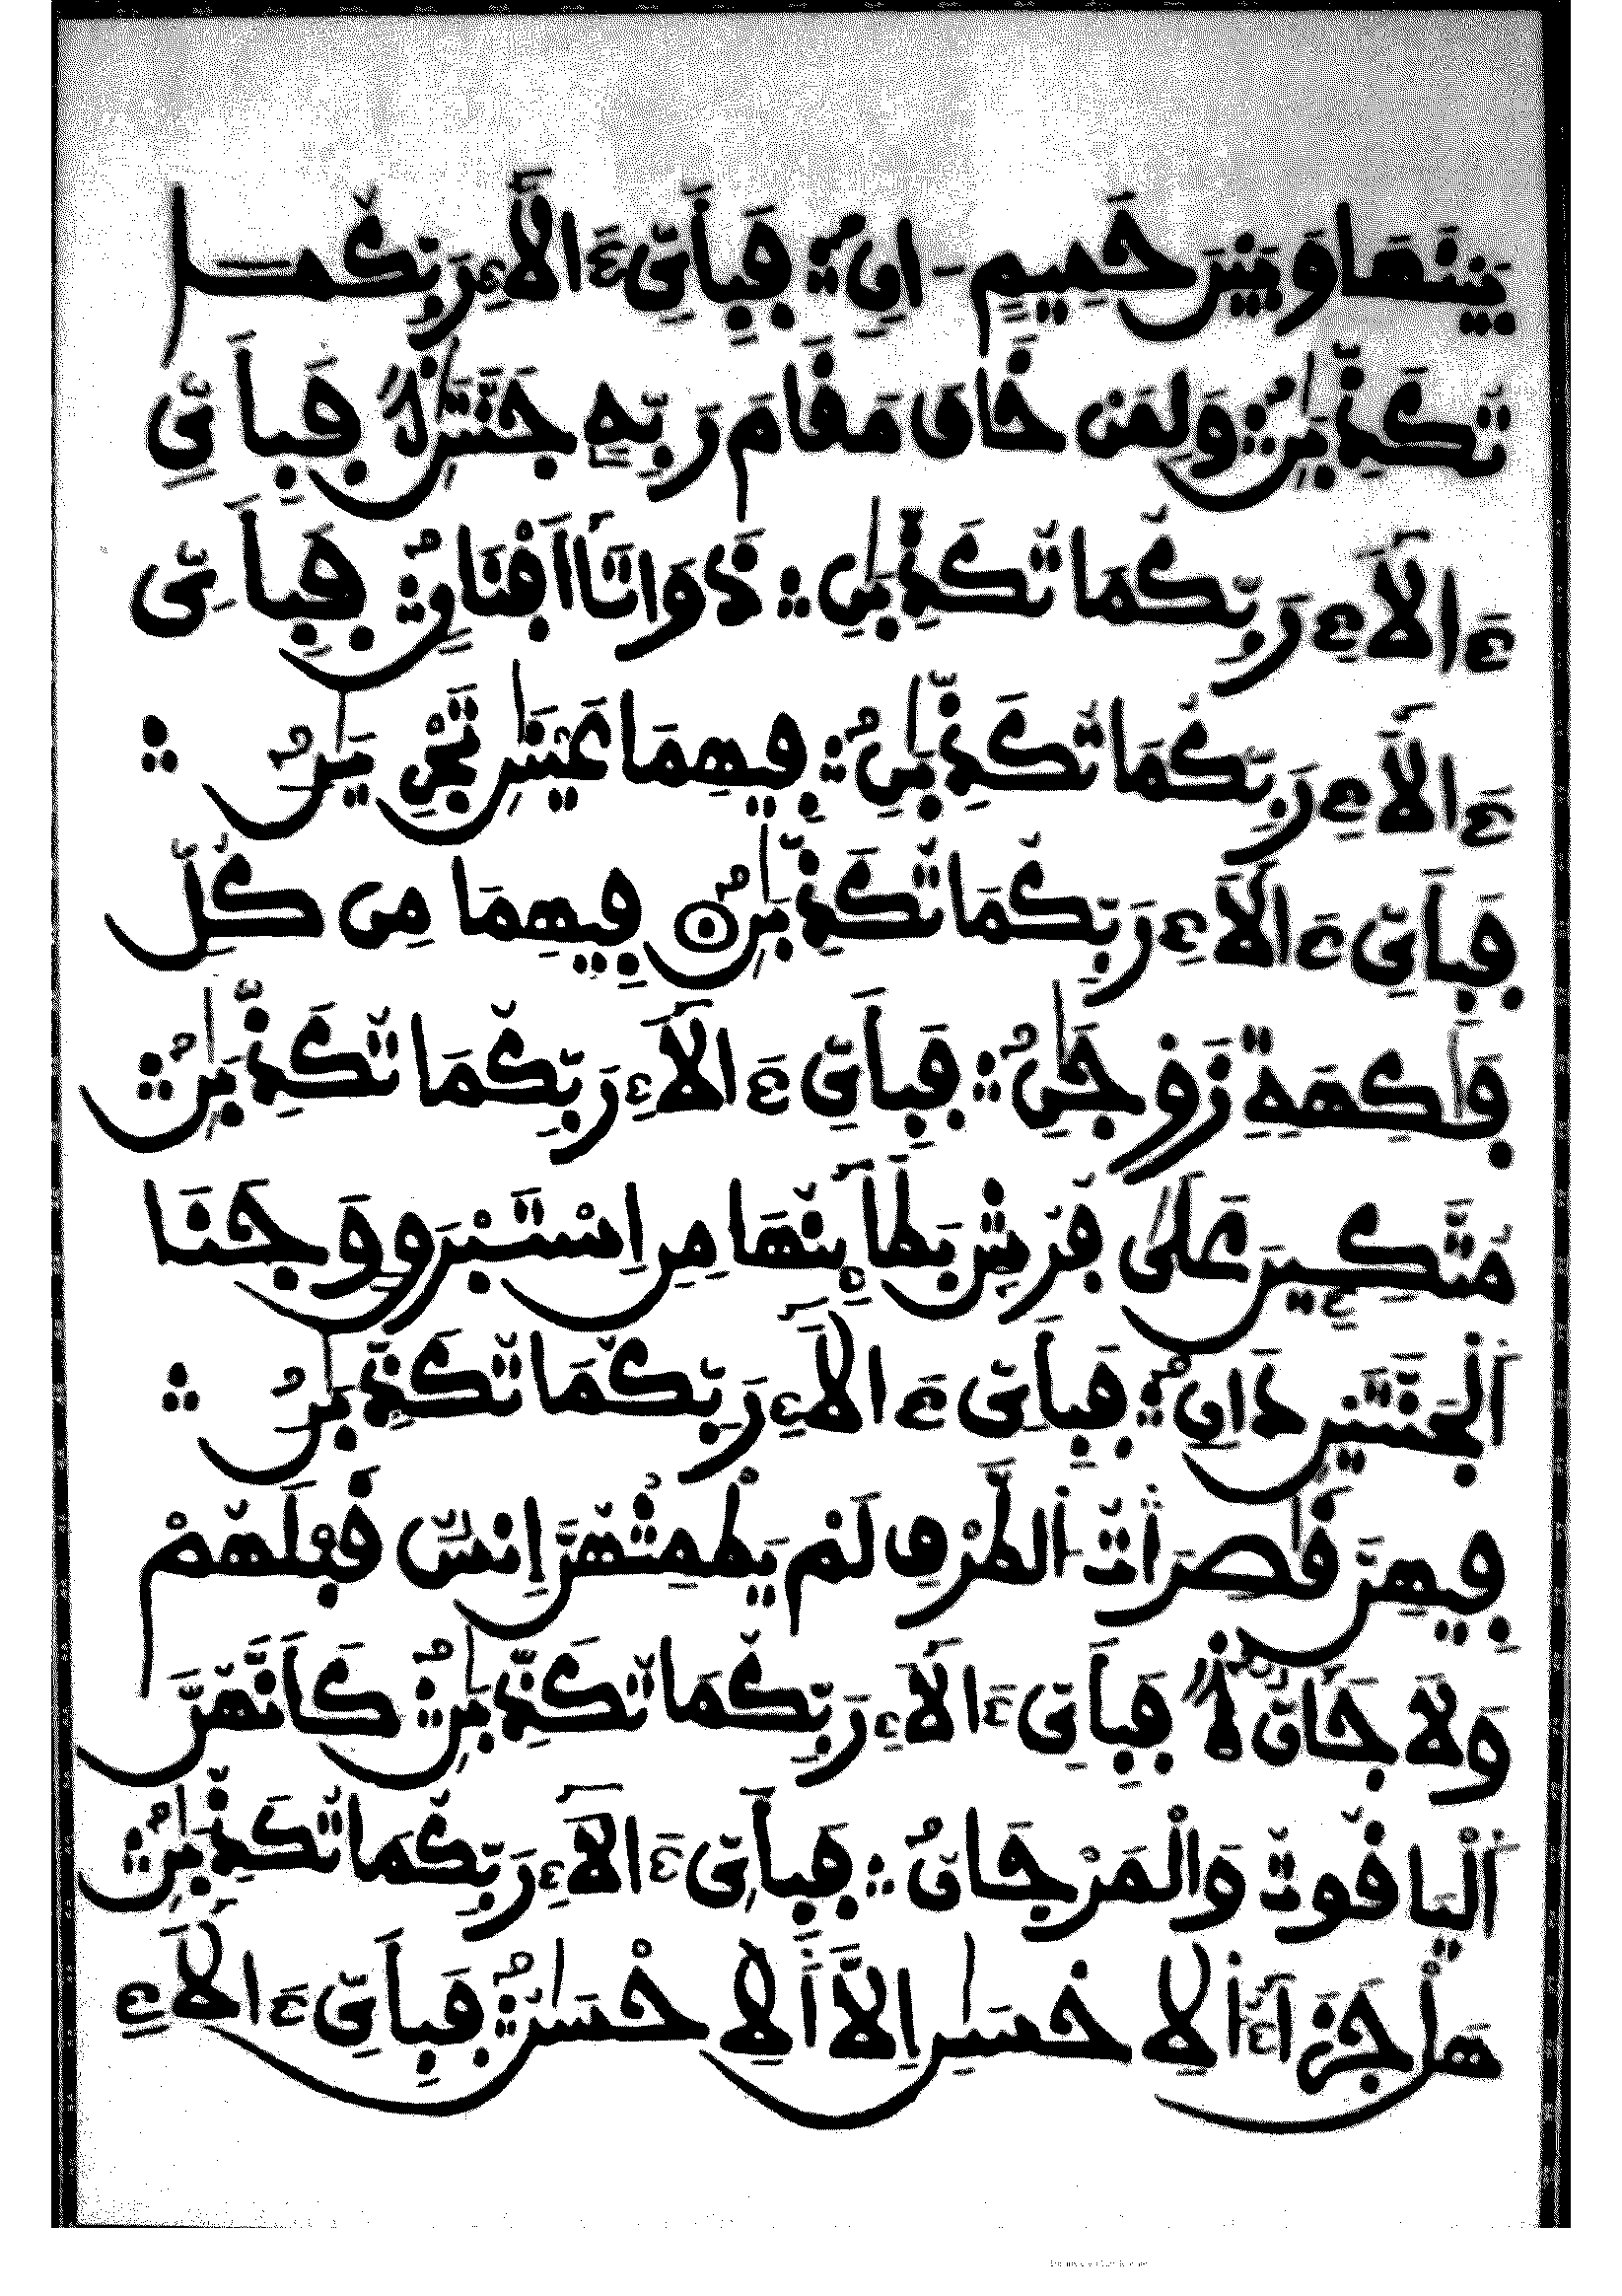 بَيْنَهَا وَبَيْنَ حَمِيمٍ ـ انٍ ۞ فَبِأَيِّ ءَالَآءِ رَبِّكُمَا
تُكَذِّبَٰنِ ۞ وَلِمَنْ خَافَ مَقَامَ رَبِّهِ جَنَّتَٰنِ ۞ فَبِأَيِّ
ءَالَآءِ رَبِّكُمَا تُكَذِّبَٰنِ ۞ ذَوَاتَآ أَفْنَانٍ ۞ فَبِأَيِّ
ءَالَآءِ رَبِّكُمَا تُكَذِّبَٰنِ ۞ فِيهِمَا عَيْنَٰنِ تَجْرِيَٰنِ ۞
فَبِأَيِّ ءَالَآءِ رَبِّكُمَا تُكَذِّبَٰنِ ۞ فِيهِمَا مِن كُلِّ
فَٰكِهَةٍ زَوْجَٰنِ ۞ فَبِأَيِّ ءَالَآءِ رَبِّكُمَا تُكَذِّبَٰنِ ۞
مُتَّكِـِٕينَ عَلَىٰ فُرُشٍ بَطَآئِنُهَا مِنِ اسْتَبْرَقٍ وَجَنَا
اَلْجَنَّتَيْنِ دَانٍ ۞ فَبِأَيِّ ءَالَآءِ رَبِّكُمَا تُكَذِّبَٰنِ ۞
فِيهِنَّ قَٰصِرَاتُ اَلطَّرْفِ لَمْ يَطْمِثْهُنَّ إِنسٌ قَبْلَهُمْ
وَلَا جَانٌّ ۞ فَبِأَيِّ ءَالَآءِ رَبِّكُمَا تُكَذِّبَٰنِ ۞ كَأَنَّهُنَّ
اَلْيَاقُوتُ وَالْمَرْجَانُ ۞ فَبِأَيِّ ءَالَآءِ رَبِّكُمَا تُكَذِّبَٰنِ ۞
هَلْ جَزَآءُ اَلِاحْسَٰنِ إِلَّا اَلِاحْسَٰنُ ۞ فَبِأَيِّ ءَالَآءِ